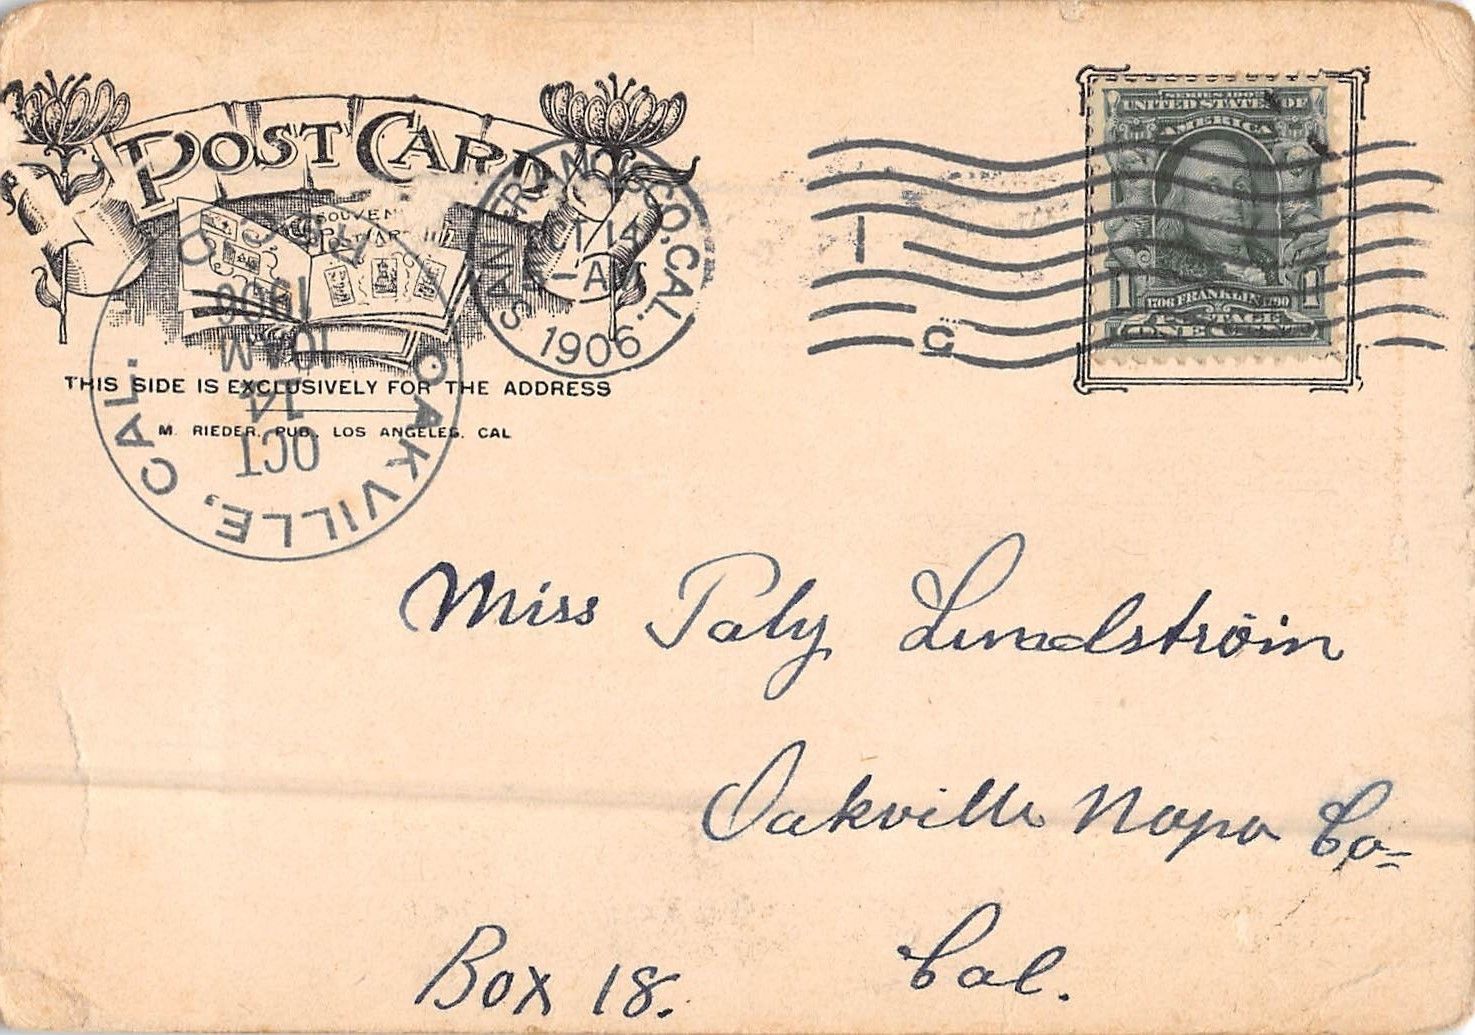 POST CARD
SOUVENIR
THIS SIDE IS EXCLUSIVELY FOR THE ADDRESS
M. RIEDER, PUB., LOS ANGELES, CAL
SAN FRANCISCO, CAL.
OCT 14
AM
1906
1
C
SERIES 1902
UNITED STATES OF
AMERICA
1 1
1706 FRANKLIN 1790
POSTAGE
ONE CENT
OAKVILLE, CAL.
OCT
14
10 AM
1906
REC'D
Miss Paly Lundström
Oakville Napa Co=
Cal.
Box 18.